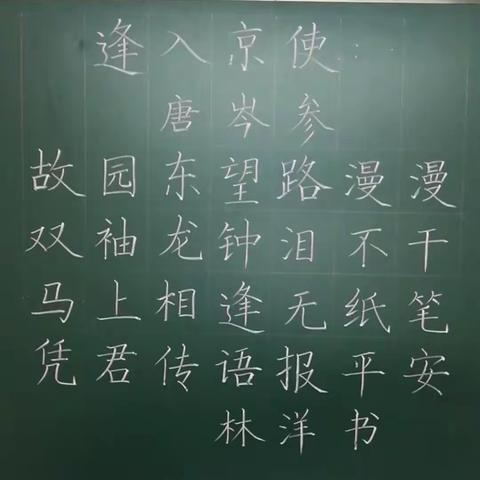 逢入京使
唐岑参
故园东望路漫漫
双袖龙钟泪不干
马上相逢无纸笔
凭君传语报平安
林洋书